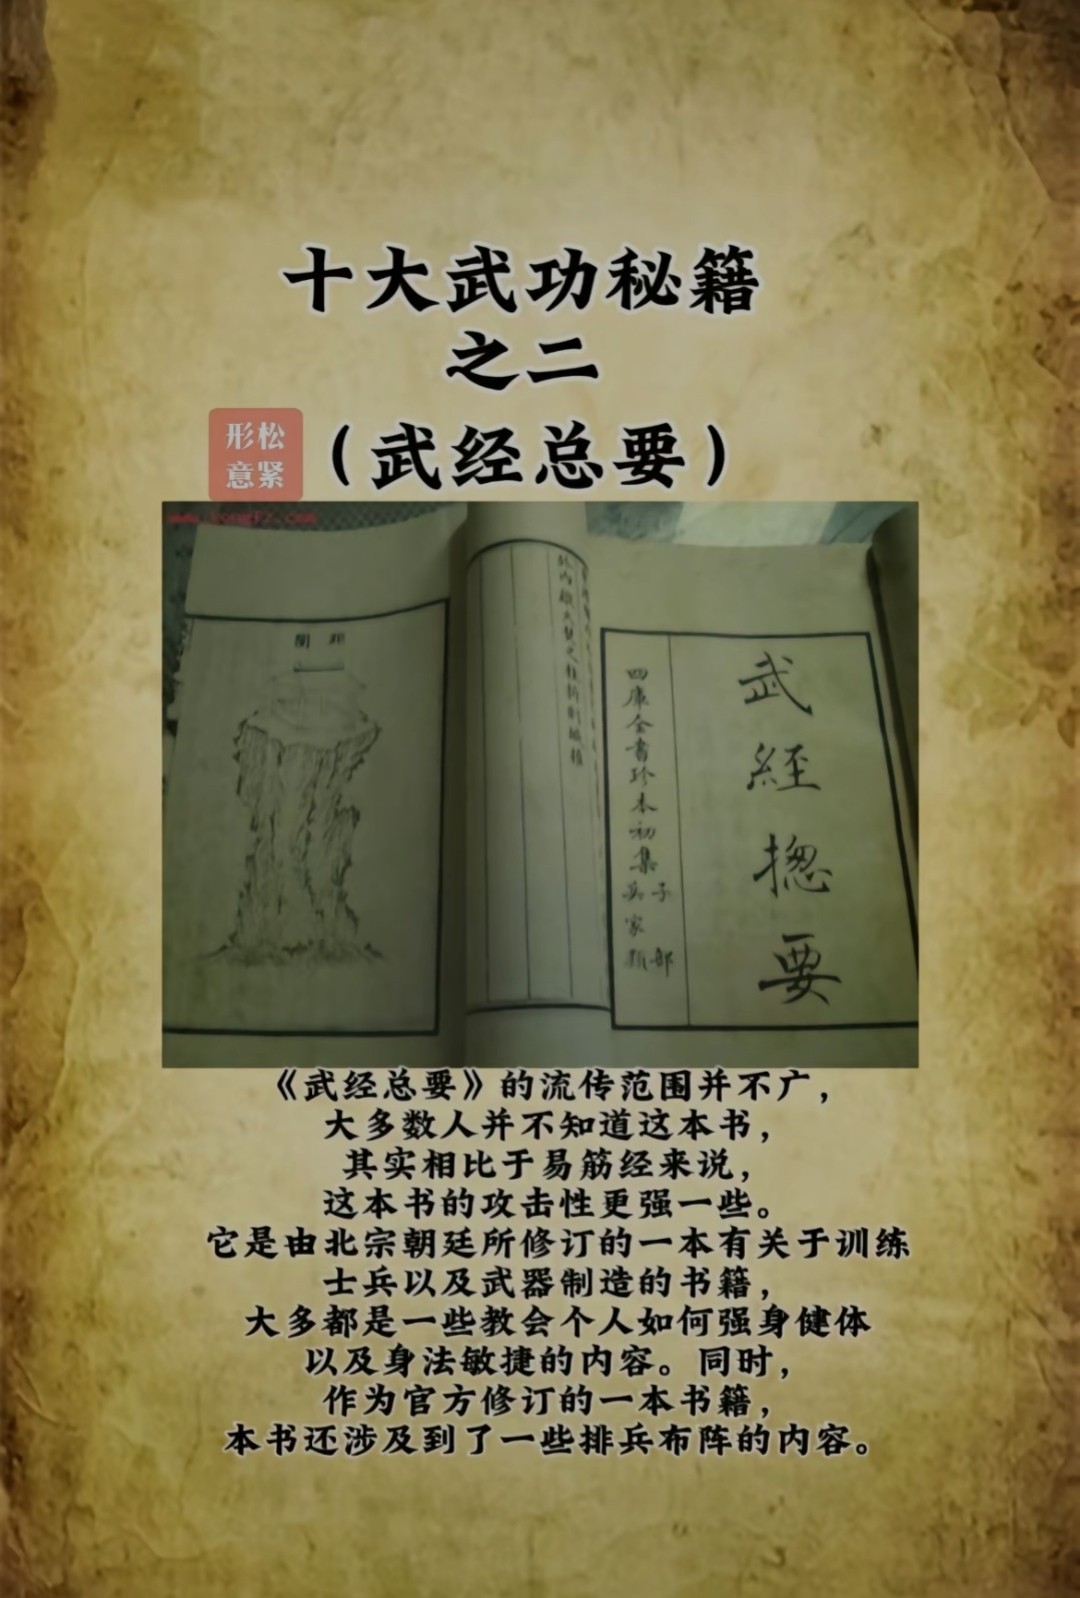 十大武功秘籍
之二
（武经总要）
形松
意紧
武經揔要
四库全書珍本初集
子部
《武经总要》的流传范围并不广，
大多数人并不知道这本书，
其实相比于易筋经来说，
这本书的攻击性更强一些。
它是由北宗朝廷所修订的一本有关于训练
士兵以及武器制造的书籍，
大多都是一些教会个人如何强身健体
以及身法敏捷的内容。同时，
作为官方修订的一本书籍，
本书还涉及到了一些排兵布阵的内容。